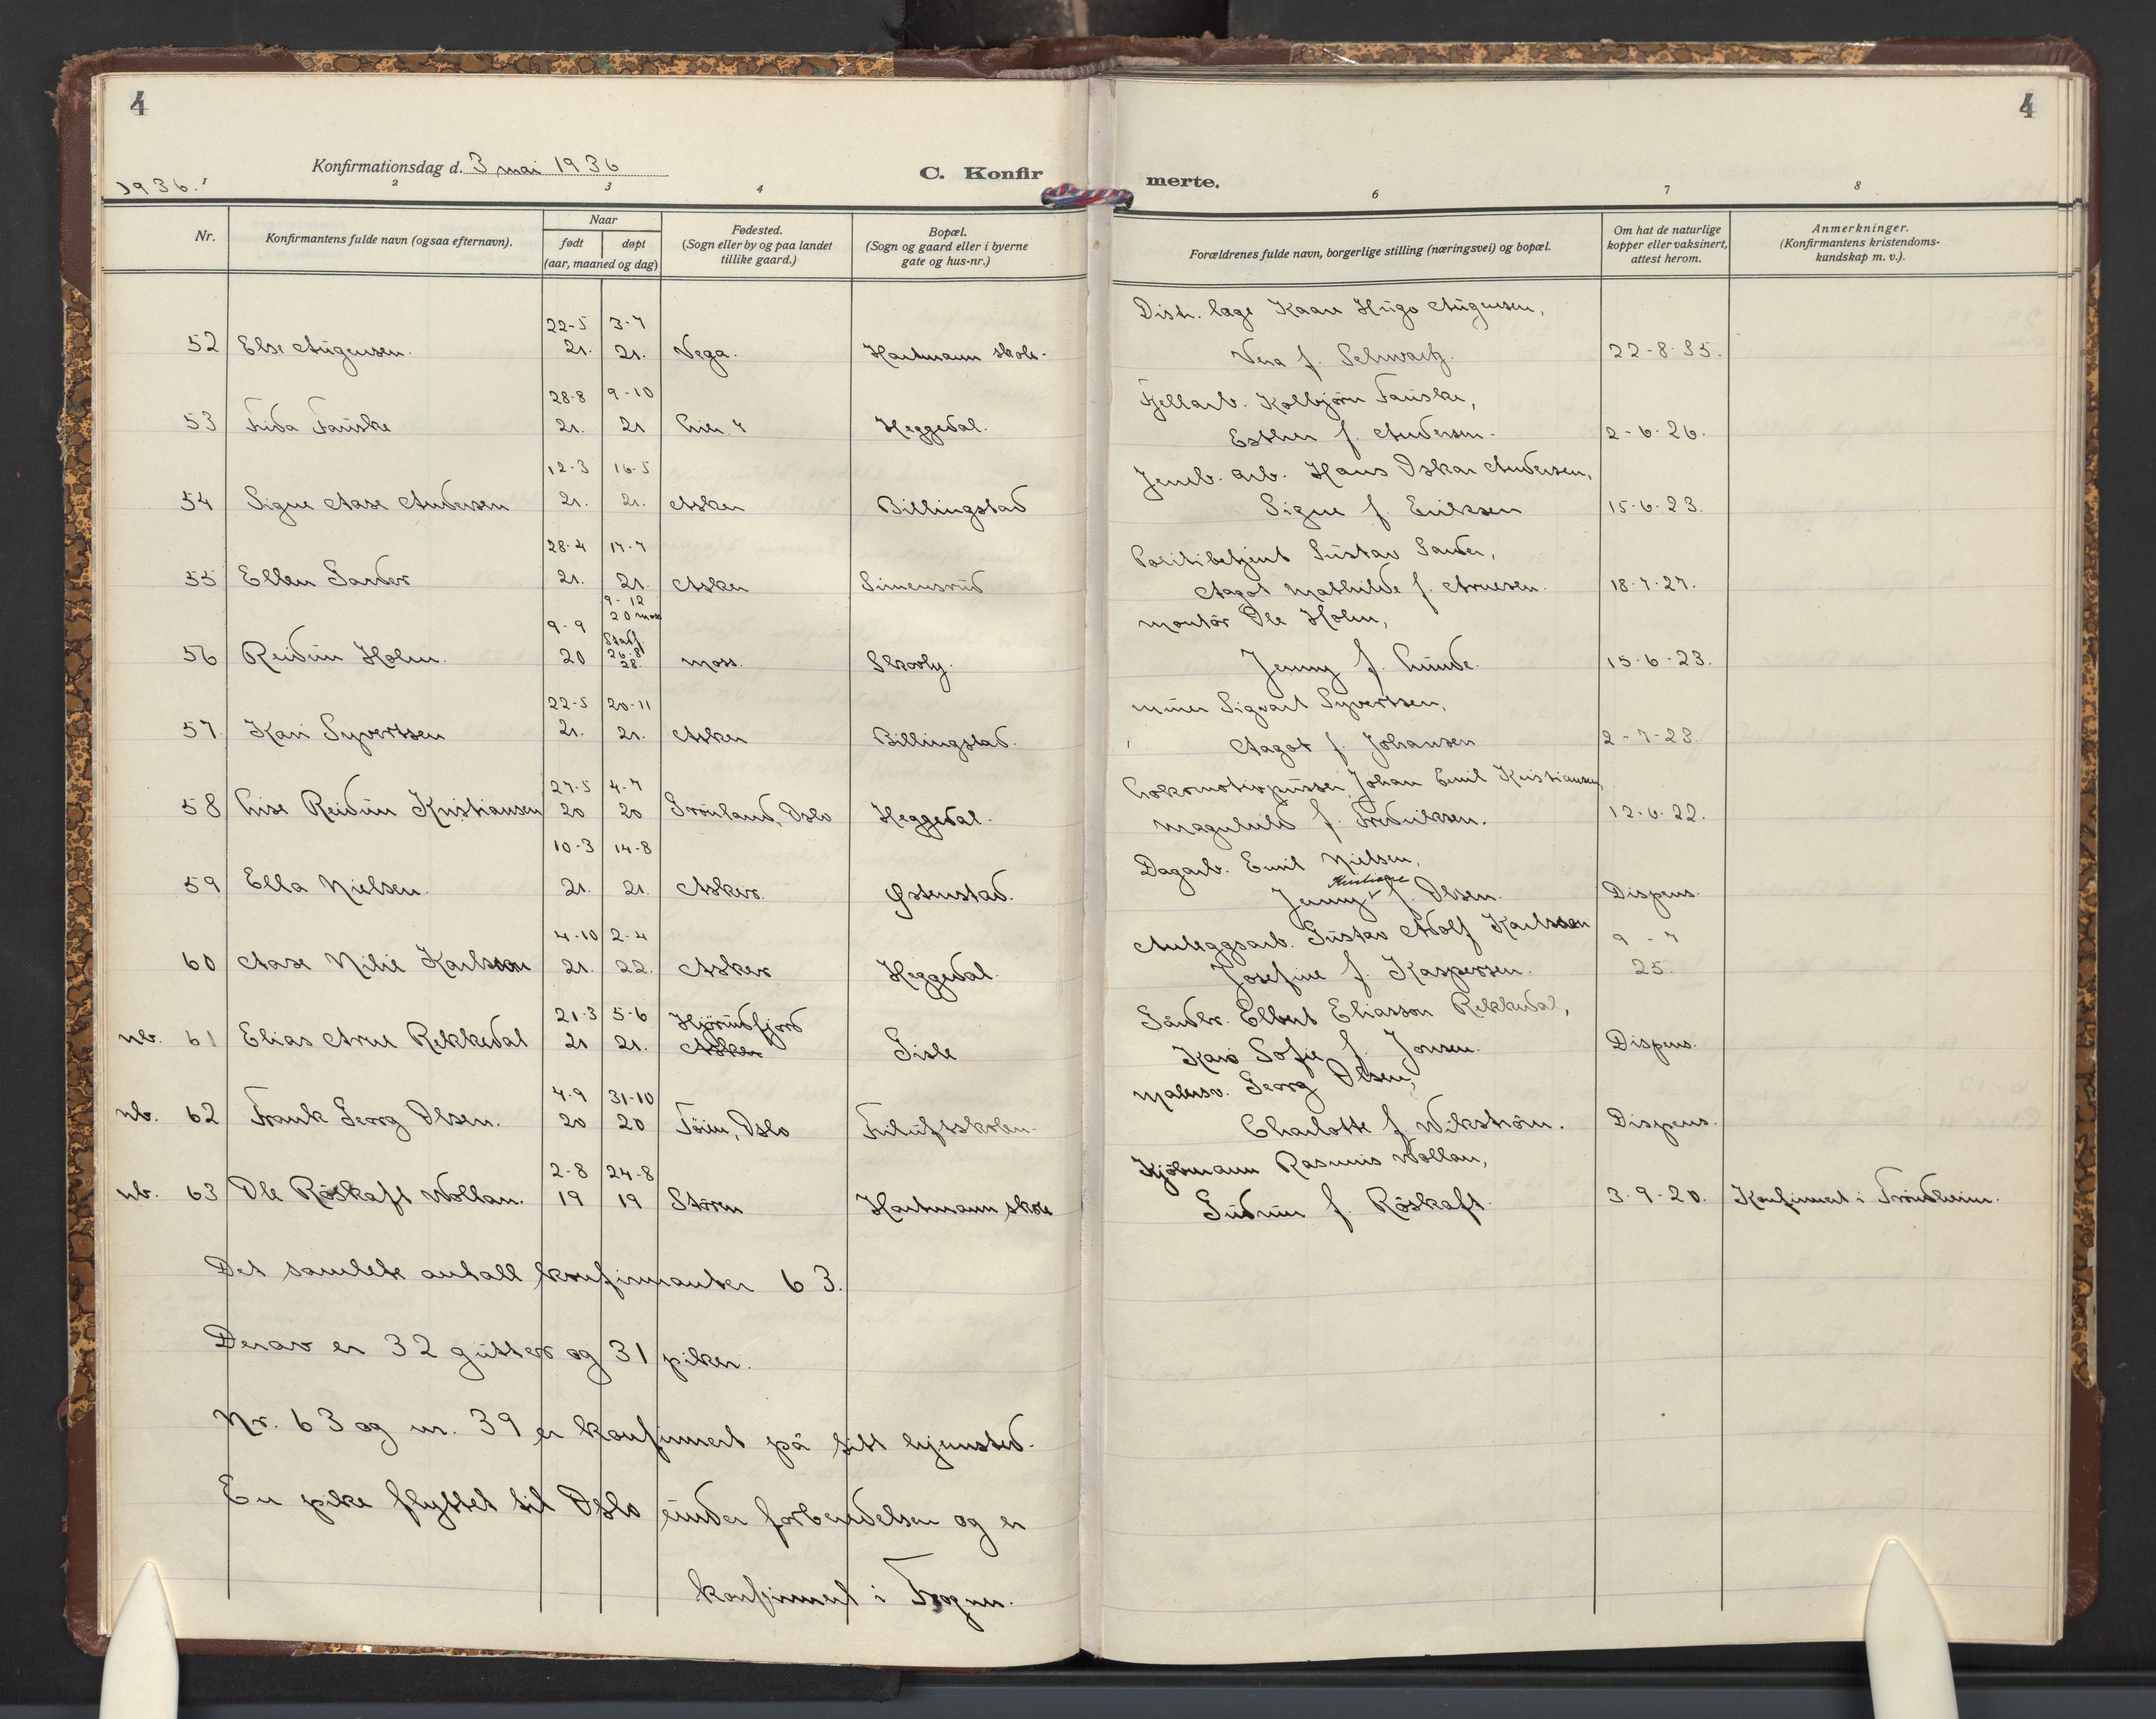 4
4
Konfirmationsdag d. 3 mai 1936
C. Konfir
merte.
1936.
1
2
3
4
6
7
8
Nr.
Konfirmantens fulde navn (ogsaa efternavn).
Naar
født
døpt
(aar, maaned og dag)
Fødested.
(Sogn eller by og paa landet
tillike gaard.)
Bopæl.
(Sogn og gaard eller i byerne
gate og hus-nr.)
Forældrenes fulde navn, borgerlige stilling (næringsvei) og bopæl.
Om hat de naturlige
kopper eller vaksinert,
attest herom.
Anmerkninger.
(Konfirmantens kristendoms-
kundskap m. v.).
22-5 3-7 Distr. læge Kaare Hugo
52 Else 21. 21. Vega. Hartmann skole. Vera f. Schwartz. 22-8-35.
28-8 9-10 Fjellarb. Kolbjørn Fauske,
53 Frida Fauske 21. 21 Heggedal. Esther f. Andersen. 2-6-26.
12-3 16-5 Jernb. arb. Hans Oskar Andersen,
54 Signe Aase Andersen 21. 21. Asker Billingstad Signe f. Eriksen 15-6-23.
28-4 17-7 Politibetjent Gustav Sander,
55 Ellen Sander 21. 21. Asker Simensrud Aagot Mathilde f. Arnesen. 18-7-27.
9-9 9-12 20 Moss Montör Ole Holm,
Stadf.
56 Reidun Holm. 20 26-8 28. Moss. Skovly. Jenny f. Lunde. 15-6-23.
22-5 20-11 Murer Sigvart Syvertsen,
57. Kari Syvertsen 21. 21. Asker Billingstad. Aagot f. Johansen 2-7-23.
27-5 4-7 Lokomotivpusser Johan Emil Kristiansen,
58 Lise Reidun Kristiansen 20 20 Grönland, Oslo Heggedal. Magnhild f. Fredriksen. 12-6-22.
10-3 14-8 Dagarb. Emil Nielsen,
Kristiane
59 Ella Nielsen. 21. 21. Asker. Østenstad. Jenny f. Olsen. Dispens.
4-10 2-4 Anleggsarb. Gustav Adolf Karlsson 9-7
60 Aase Karlsson 21. 22. Asker Heggedal. Josefine f. Kaspersen. 25.
21-3 5-6 Hjörundfjord Gårdbr. Elbert Eliasson Rekkedal,
nb. 61 Elias Arne Rekkedal 21 21. Asker Gisle Sofie f. Jonsen. Dispens.
4-9 31-10 Malersv. Georg Olsen,
nb. 62 Frank Georg Olsen. 20 20 Töien, Oslo Friluftskolen. Charlotte f. Wikström. Dispens.
2-8 24-8 Kjöbmann Rasmus Wollan,
nb. 63 Ole Röskaft Wollan. 19 19 Stören Hartmann skole Gudrun f. Röskaft. 3-9-20. Konfirmert i Trondheim.
Det samlede antall konfirmanter 63.
Derav er 32 gutter og 31 piker.
Nr. 63 og nr. 39 er konfirmert på sitt hjemsted.
En pike flyttet til Oslo under forberedelsen og er
konfirmert i Frogner.